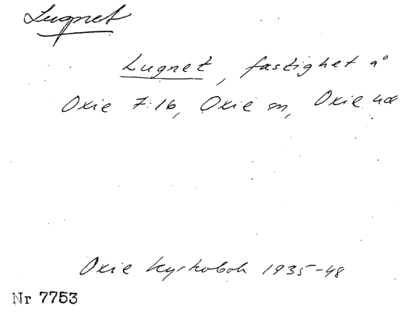 Lugnet
Lugnet, fastighet å
Oxie 7:16, Oxie sn, Oxie hd
Oxie kyrkobok 1935-48
Nr 7753